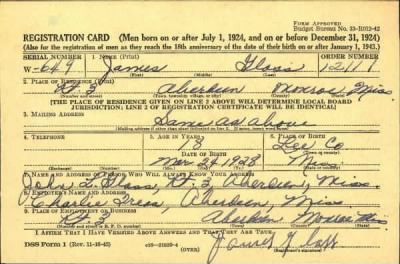 FORM APPROVED
Budget Bureau No. 33-R012-42
REGISTRATION CARD (Men born on or after July 1, 1924, and on or before December 31, 1924)
(Also for the registration of men as they reach the 18th anniversary of the date of their birth on or after January 1, 1943.)
SERIAL NUMBER 1. NAME (Print) ORDER NUMBER
W-649 James Glass 12111
(First) (Middle) (Last)
2. PLACE OF RESIDENCE (Print)
Rt. 3 Aberdeen Monroe Miss.
(Number and street) (Town, township, village, or city) (County) (State)
[THE PLACE OF RESIDENCE GIVEN ON LINE 2 ABOVE WILL DETERMINE LOCAL BOARD
JURISDICTION; LINE 2 OF REGISTRATION CERTIFICATE WILL BE IDENTICAL]
3. MAILING ADDRESS
Same as above
[Mailing address if other than place indicated on line 2. If same, insert word same]
4. TELEPHONE 5. AGE IN YEARS 6. PLACE OF BIRTH
18 Lee Co
DATE OF BIRTH
Mar 24 1928 Miss.
7. NAME AND ADDRESS OF PERSON WHO WILL ALWAYS KNOW YOUR ADDRESS
John L. Glass, Rt. 3, Aberdeen, Miss.
8. EMPLOYER'S NAME AND ADDRESS
Charlie Aberdeen, Miss
9. PLACE OF EMPLOYMENT OR BUSINESS
Rt. 3 Aberdeen Monroe Miss
(Number and street or R. F. D. number) (Town) (County) (State)
I AFFIRM THAT I HAVE VERIFIED ABOVE ANSWERS AND THAT THEY ARE TRUE.
DSS Form 1 (Rev. 11-16-42) (OVER) James Glass